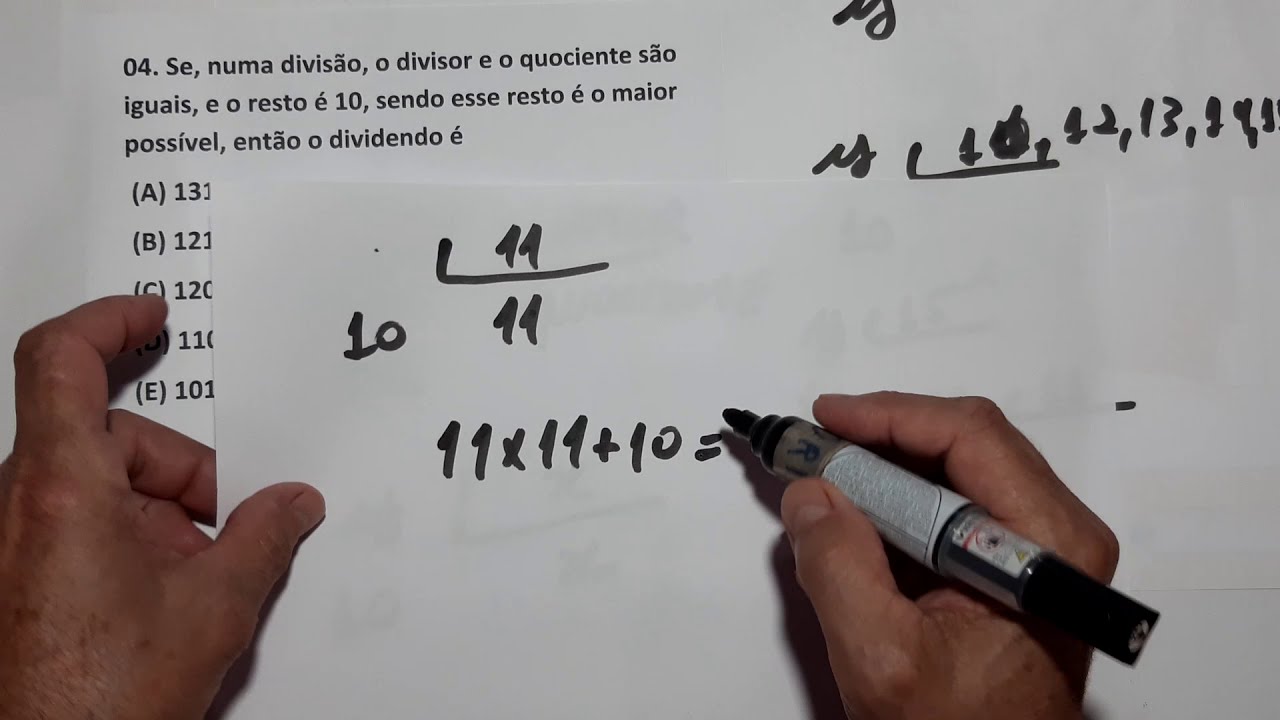 04. Se, numa divisão, o divisor e o quociente são
iguais, e o resto é 10, sendo esse resto é o maior
possível, então o dividendo é
(A) 131
(B) 121
(C) 120
(D) 110
(E) 101
12, 13, 14,
11
10 11
11x11+10=